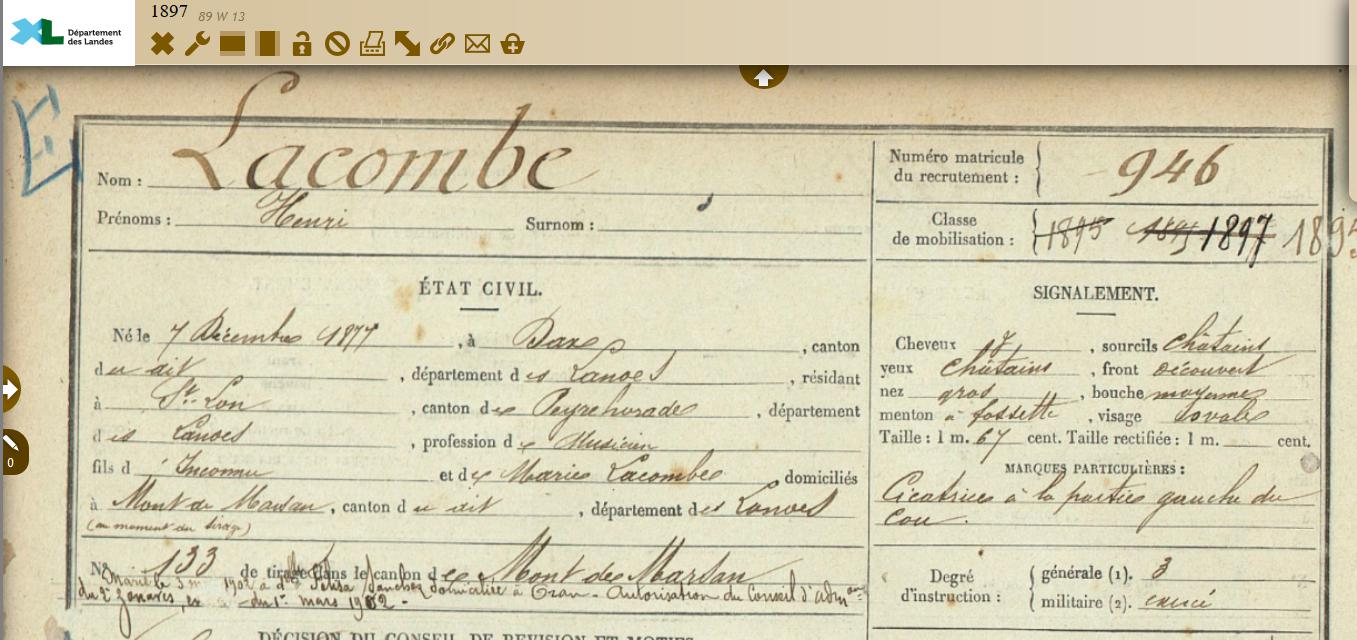 1897 89 W 13
Département
des Landes
E
Nom : Lacombe
Prénoms : Henri Surnom :
Numéro matricule
du recrutement : 946
Classe
de mobilisation : 1895 1895 1897 189
ÉTAT CIVIL.
Né le 7 Décembre 1877, à Dax, canton
du dit, département des Landes, résidant
à St. Lon, canton de Peyrehorade, département
des Landes, profession de Musicien
fils d'Inconnu et de Marie Lacombe domiciliés
à Mont de Marsan, canton du dit, département des Landes
(au moment du tirage)
N° 133 de tirage dans le canton de Mont de Marsan
Marié le 3 1902 à Sanchez domiciliée à Oran - Autorisation du Conseil d'adm
du 2e Zouaves, en du 1er mars 1902 -
DÉCISION DU CONSEIL DE REVISION ET MOTIFS
SIGNALEMENT.
Cheveux, sourcils châtains
yeux châtains, front découvert
nez gros, bouche moyenne
menton à fossette, visage ovale
Taille : 1 m. 67 cent. Taille rectifiée : 1 m. cent.
MARQUES PARTICULIÈRES :
Cicatrices à la partie gauche du
cou.
Degré
d'instruction :
générale (1). 3
militaire (2). exercé
0